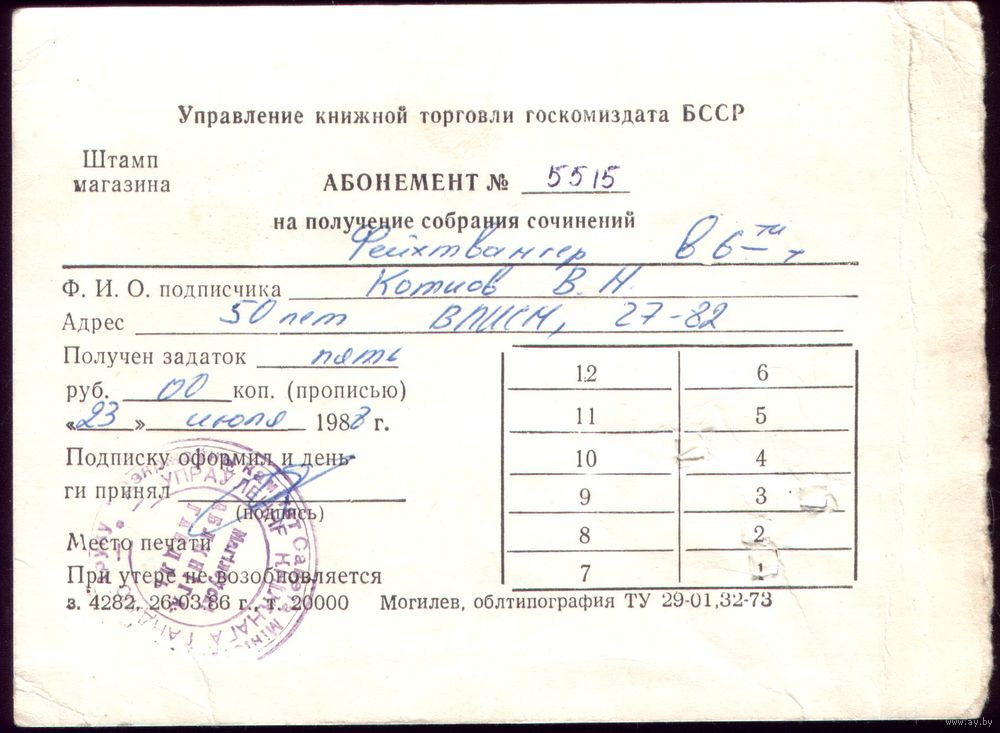 Управление книжной торговли госкомиздата БССР
Штамп
магазина
АБОНЕМЕНТ № 5515
на получение собрания сочинений
Фейхтвангер в 6-ти т
Ф. И. О. подписчика Котиов В. Н.
Адрес 50 лет ВЛКСМ, 27-82
Получен задаток пять
руб. 00 коп. (прописью)
«23» июля 1988 г.
Подписку оформил и день-
ги принял
(подпись)
Место печати
При утере не возобновляется
12 6
11 5
10 4
9 3
8 2
7 1
з. 4282, 26.03.86 г., т. 20000 Могилев, облтипография ТУ 29-01,32-73
www.ay.by